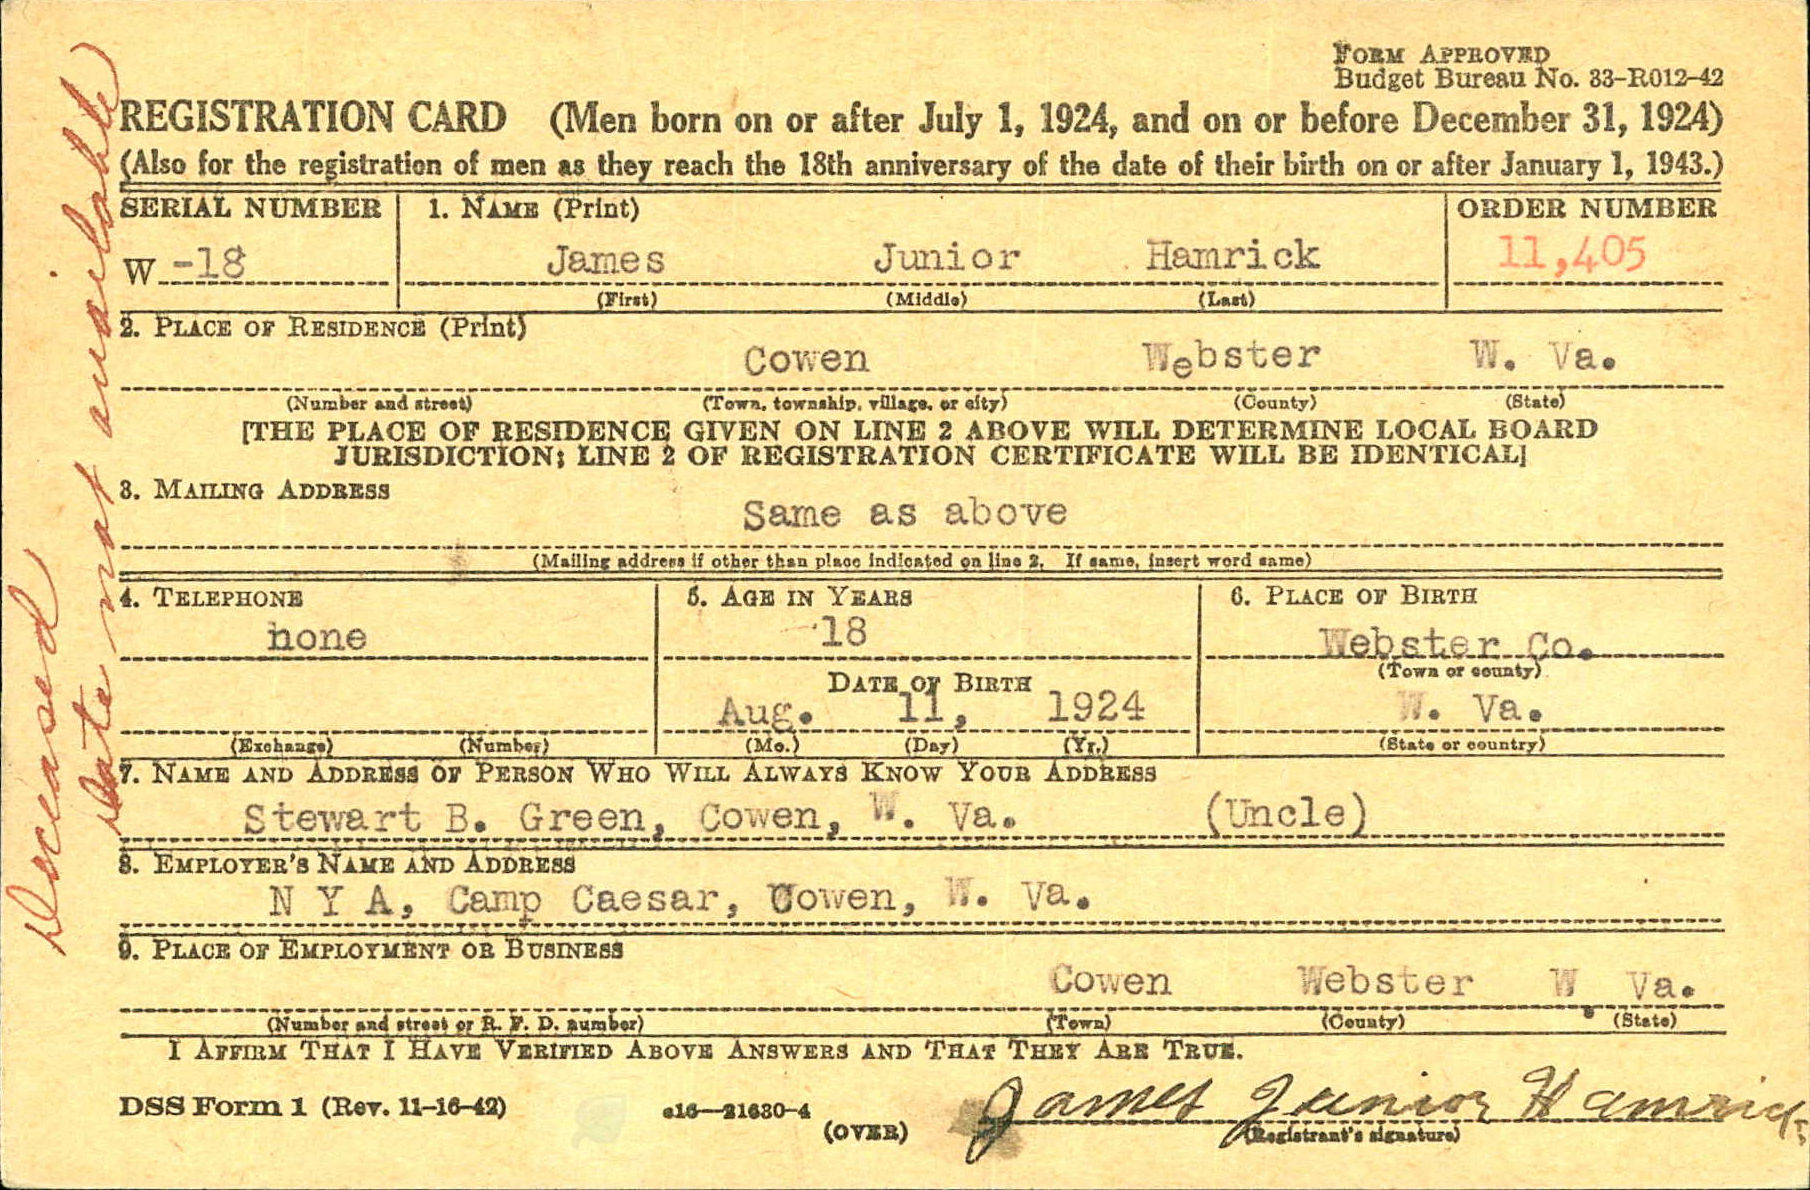 FORM APPROVED
Budget Bureau No. 33-R012-42
REGISTRATION CARD (Men born on or after July 1, 1924, and on or before December 31, 1924)
(Also for the registration of men as they reach the 18th anniversary of the date of their birth on or after January 1, 1943.)
SERIAL NUMBER 1. NAME (Print) ORDER NUMBER
W -18 James Junior Hamrick 11,405
(First) (Middle) (Last)
2. PLACE OF RESIDENCE (Print)
Cowen Webster W. Va.
(Number and street) (Town, township, village, or city) (County) (State)
[THE PLACE OF RESIDENCE GIVEN ON LINE 2 ABOVE WILL DETERMINE LOCAL BOARD
JURISDICTION; LINE 2 OF REGISTRATION CERTIFICATE WILL BE IDENTICAL]
3. MAILING ADDRESS
Same as above
(Mailing address if other than place indicated on line 2. If same, insert word same)
4. TELEPHONE 5. AGE IN YEARS 6. PLACE OF BIRTH
none 18 Webster Co.
(Town or county)
DATE OF BIRTH
Aug. 11, 1924 W. Va.
(Exchange) (Number) (Mo.) (Day) (Yr.) (State or country)
7. NAME AND ADDRESS OF PERSON WHO WILL ALWAYS KNOW YOUR ADDRESS
Stewart B. Green, Cowen, W. Va. (Uncle)
8. EMPLOYER'S NAME AND ADDRESS
N Y A, Camp Caesar, Cowen, W. Va.
9. PLACE OF EMPLOYMENT OR BUSINESS
Cowen Webster W. Va.
(Number and street or R. F. D. number) (Town) (County) (State)
I AFFIRM THAT I HAVE VERIFIED ABOVE ANSWERS AND THAT THEY ARE TRUE.
DSS Form 1 (Rev. 11-16-42) 16—21630-4 James Junior Hamrick
(OVER) (Registrant's signature)
Deceased
Date not available